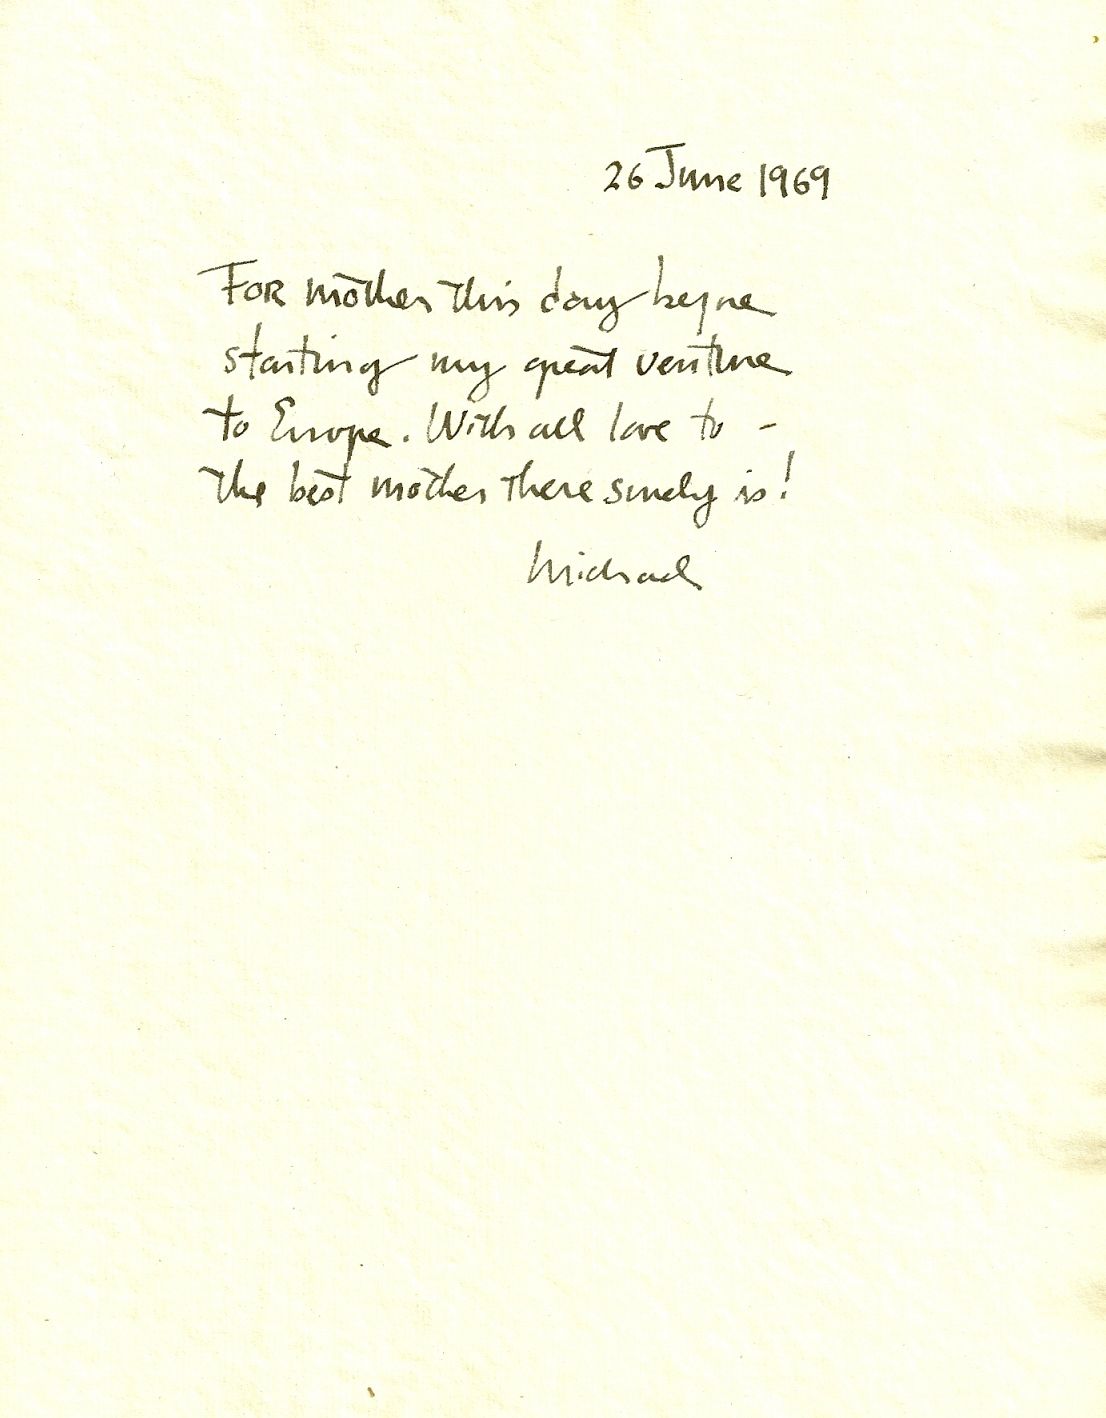 26 June 1969
For mother this day before
starting my great venture
to Europe. With all love to -
the best mother there surely is!
Michael